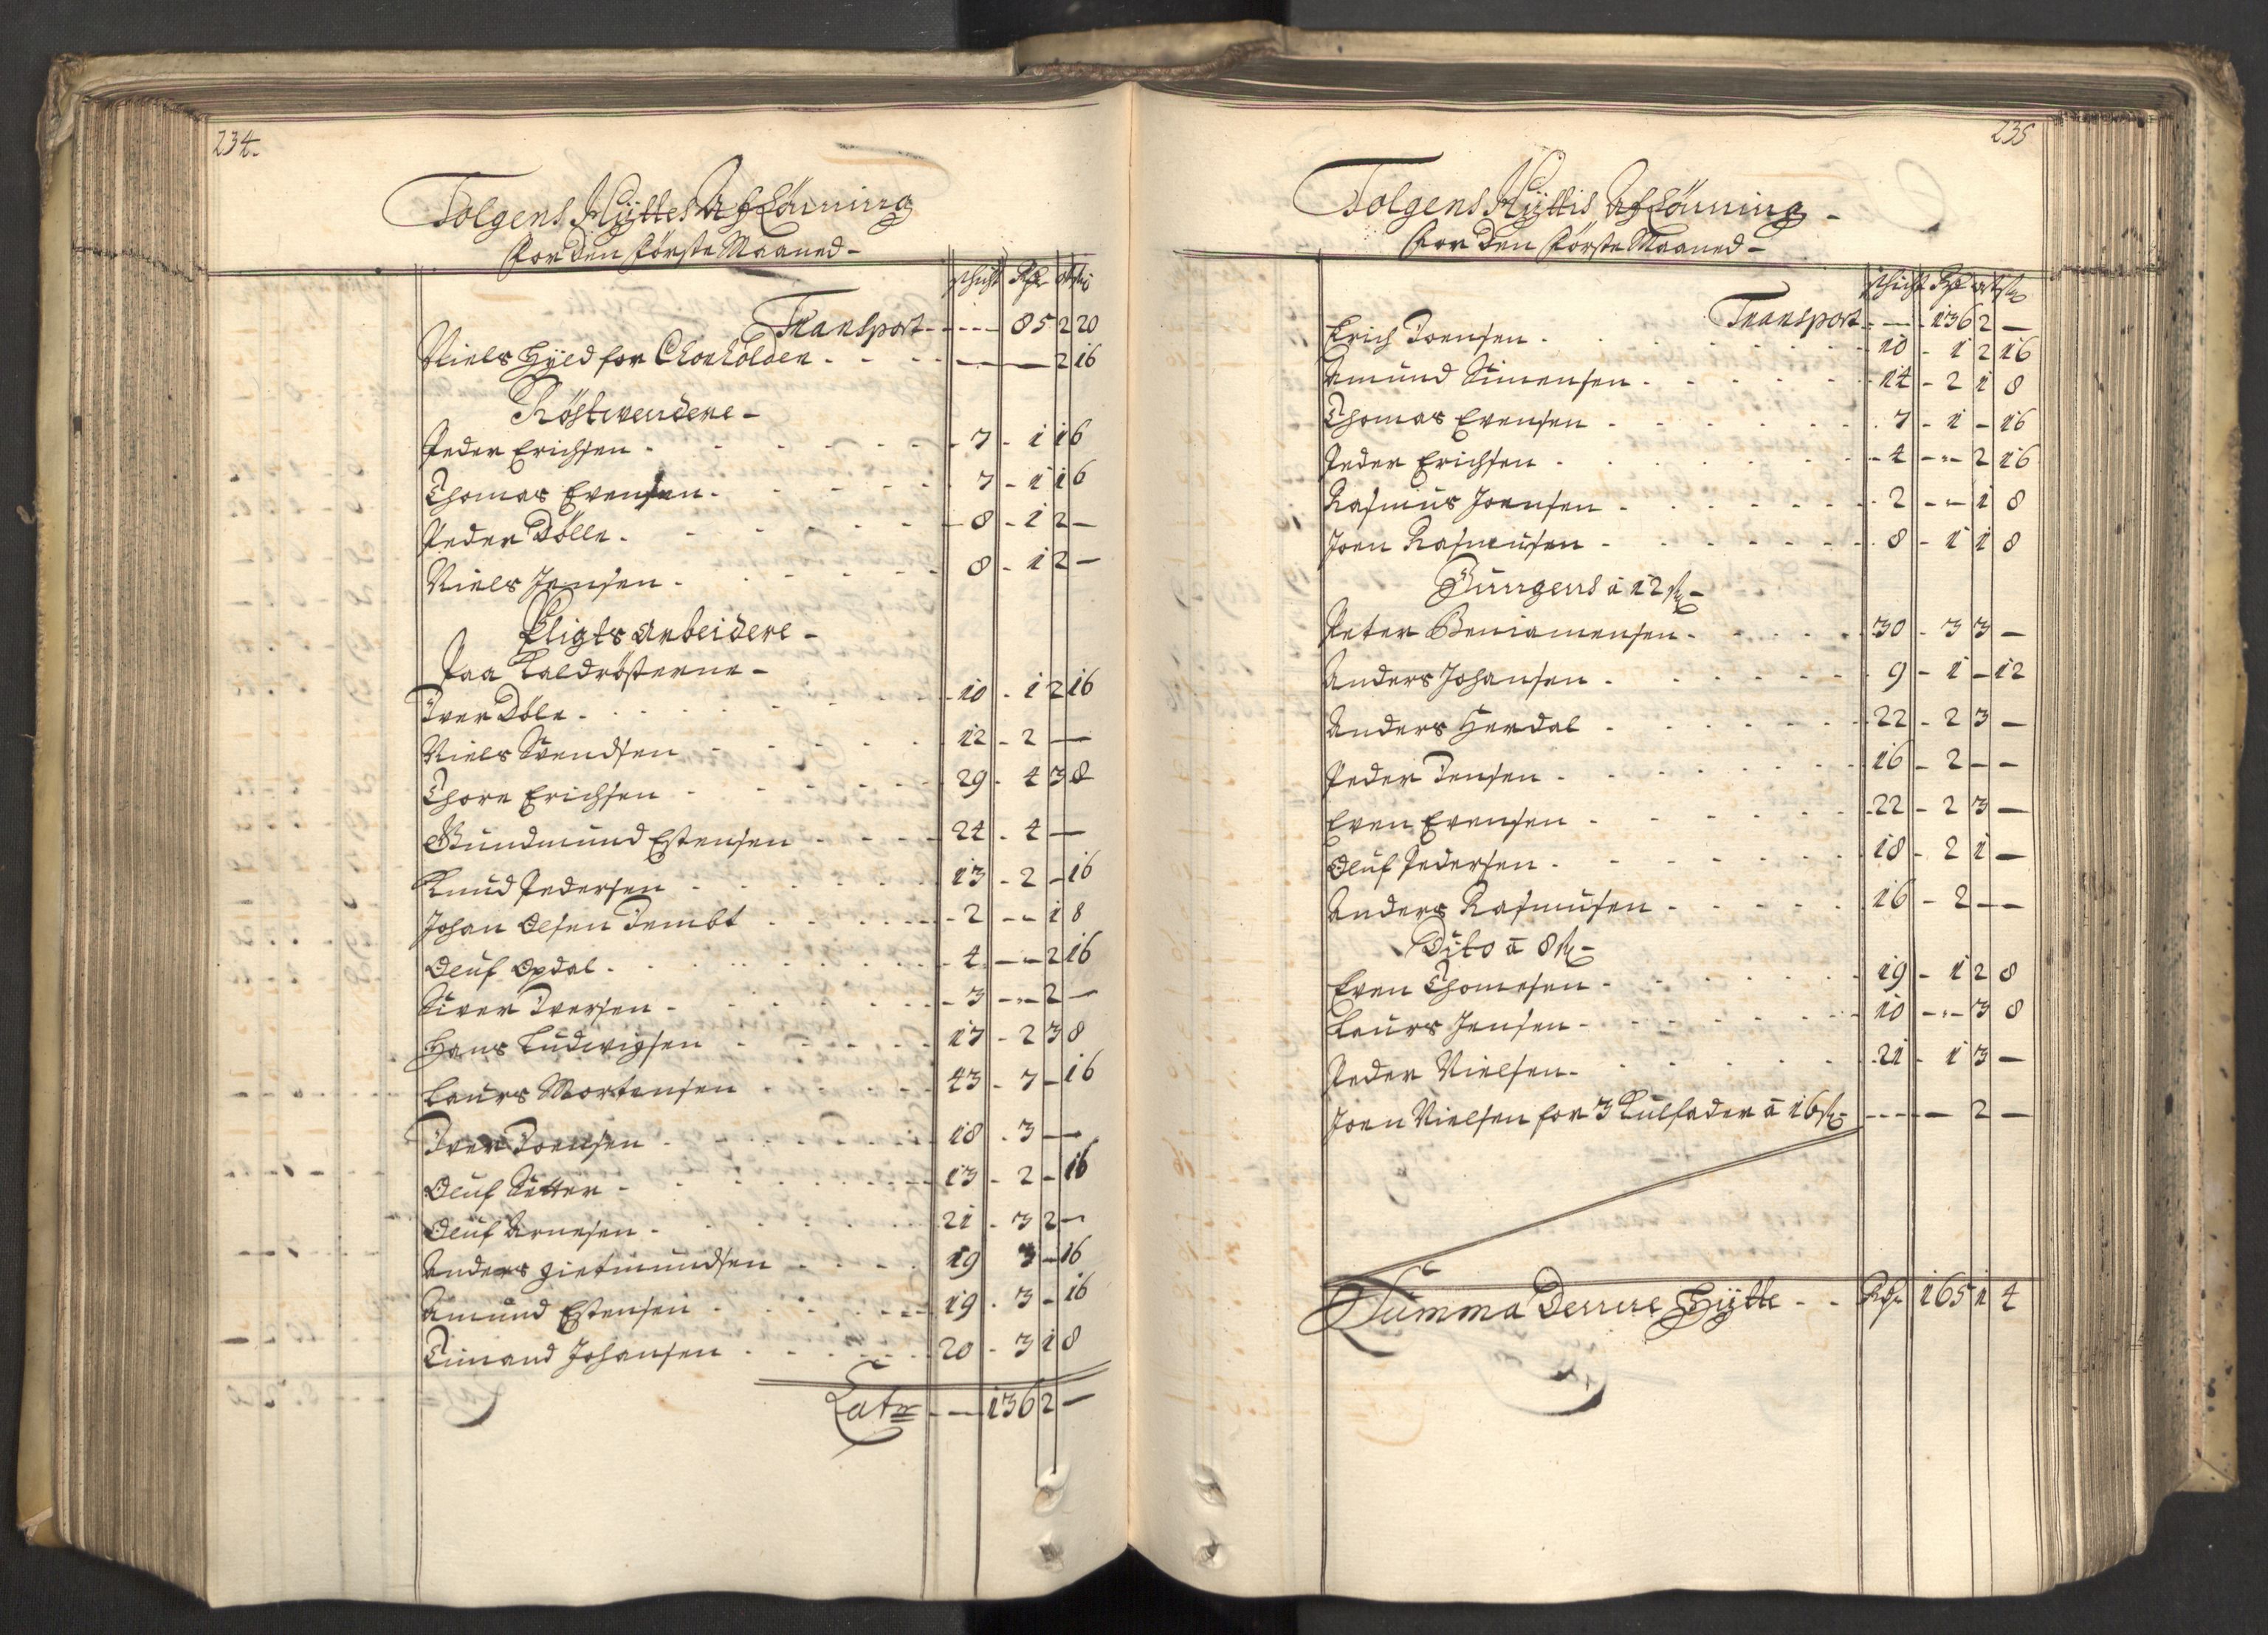 234.
Tolgens Hÿttes Aflönning
for den første Maaned –
schicht Rdr ort sk
Transport - - - - 85 2 20
Niels Hÿld for Chorhölden - - - — — 2 16
Röstwendere –
Peder Erichsen - 7 - 1 1 6
Thomas Evensen - 7 - 1 1 6
Peder Dölle - 8 - 1 2 —
Niels Jensen - 8 - 1 2 —
Pligts arbeidere –
Paa Kaldrösterne –
Iver Döle - 10 - 1 2 16
Niels Svendsen - 12 - 2 —
Thore Erichsen - 29 - 4 3 8
Gundmund Estensen - 24 - 4 —
Knud Pedersen - 13 - 2 - 16
Johan Olsen Tembt - 2 - - 1 8
Oluf Opdal - 4 - - 2 16
Siver Iversen - 3 - - 2 —
Hans Ludwigsen - 17 - 2 3 8
Laurs Mortensen - 43 - 7 - 16
Iver Joensen - 18 - 3 —
Oluf Sætter - 13 - 2 - 16
Oluf Arnesen - 21 - 3 2 —
Anders gietmundsen - 19 3 - 16
Amund Estensen - 19 - 3 - 16
Simand Johansen - 20 - 3 1 8
Latr - — 136 2 —
235
Tolgens Hÿttis Aflönning –
for den første Maaned –
schicht Rdr ort sk
Transport - — - 136 2 —
Erich Joensen - 10 - 1 2 16
Amund Simensen - 14 - 2 1 8
Thomas Evensen - 7 - 1 - 16
Peder Erichsen - 4 - - 2 16
Rasmus Joensen - 2 - - 1 8
Joen Rasmusen - 8 - 1 1 8
Jungens a 12 sk –
Peter Beniamensen - 30 - 3 3 —
Anders Johansen - 9 - 1 - 12
Anders Herdal - 22 - 2 3 —
Peder Jensen - 16 - 2 - -
Even Evensen - 22 - 2 3 —
Oluf Pedersen - 18 - 2 1 —
Anders Rasmusen - 16 - 2 - -
Dito a 8 sk –
Even Thomesen - 19 - 1 2 8
Laurs Jensen - 10 - - 3 8
Peder Nielsen - 21 - 1 3 —
Joen Nielsen for 3 Kulfader a 16 sk - - - — 2 —
Summa Denne Hÿtte - - Rdr 165 1 4